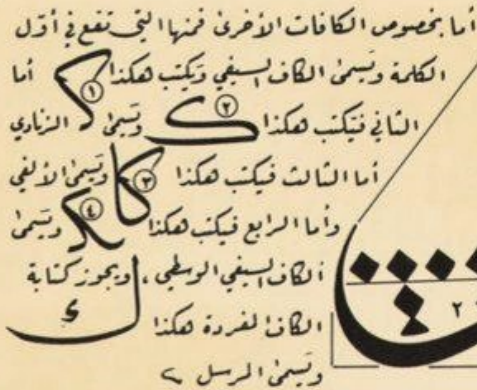 أما بخصوص الكافات الأخرى فمنها التي تقع في أول
الكلمة وتسمى الكاف السيفي ويكتب هكذا ك ١ أما
الثاني فيكتب هكذا ك ٢ وتسمى الزنادي
أما الثالث فيكتب هكذا كا ٣ وتسمى الألفي
وأما الرابع فيكتب هكذا ٤ وتسمى
الكاف السيفي الوسطي ، ويجوز كتابة
الكاف المفردة هكذا ك
وتسمى المرسل
٢